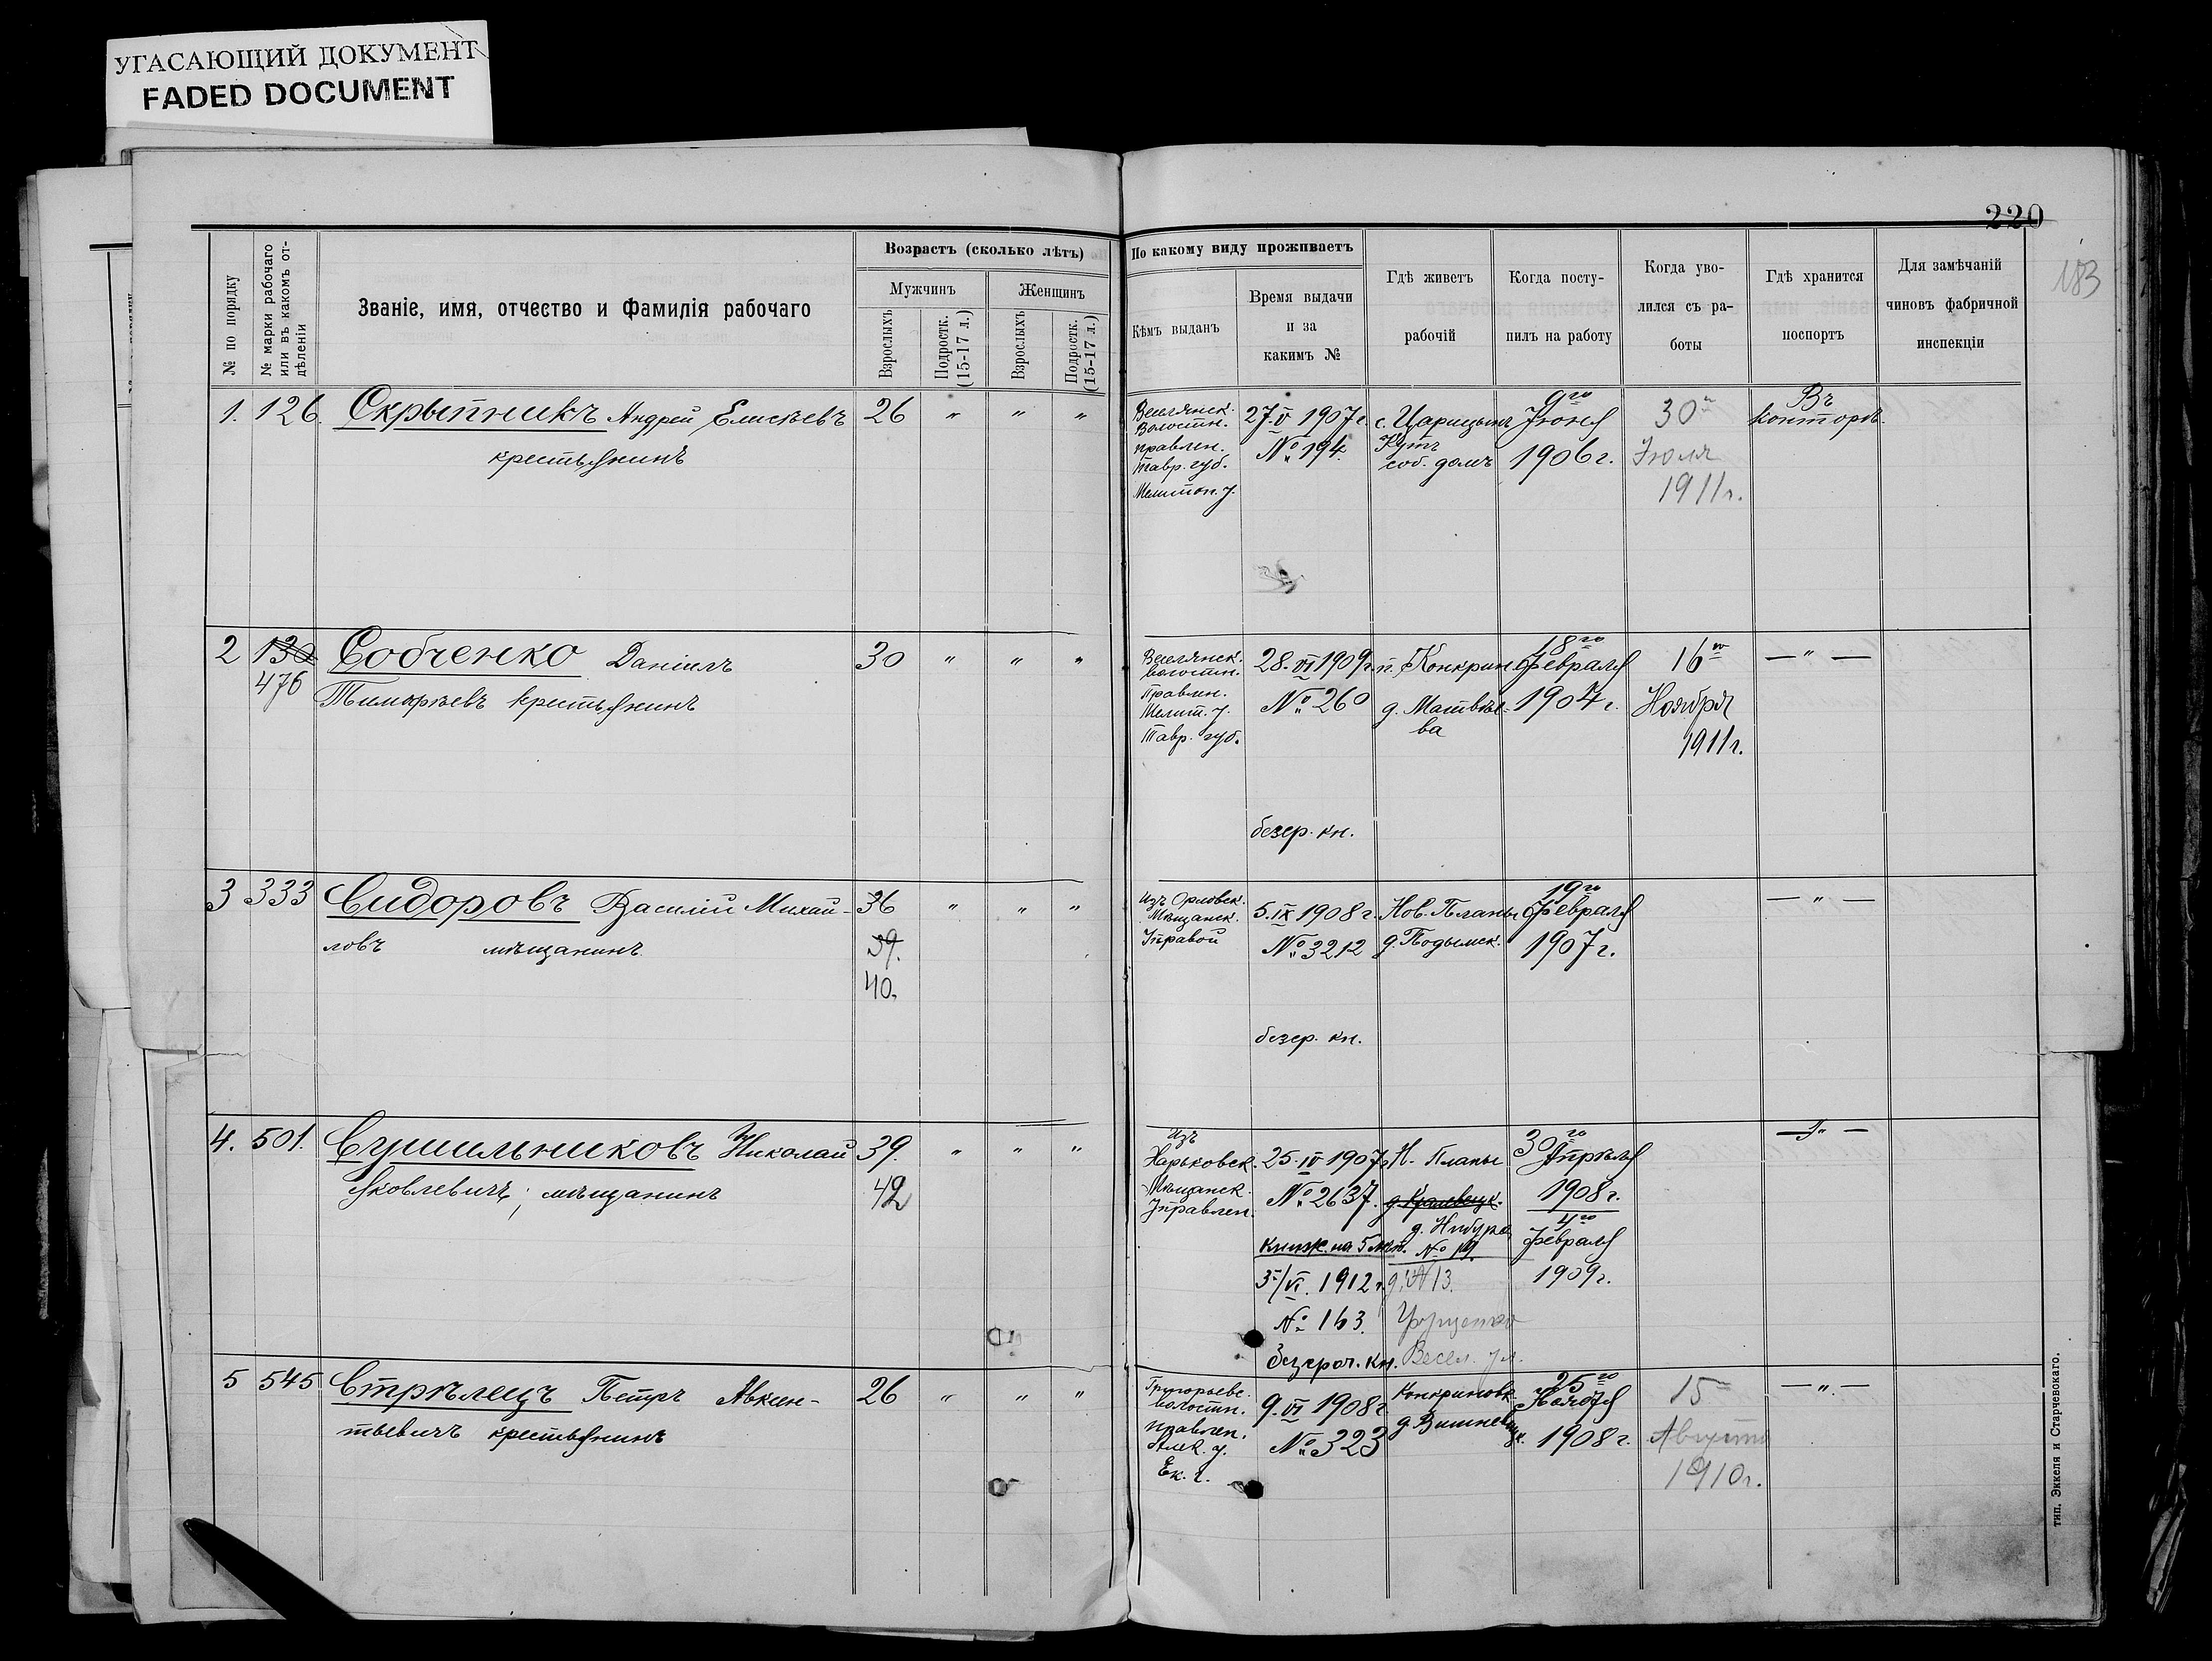 УГАСАЮЩИЙ ДОКУМЕНТ
FADED DOCUMENT
220
183
№ по порядку
№ марки рабочаго
или въ какомъ от-
дѣленіи
Званіе, имя, отчество и Фамилія рабочаго
Возрастъ (сколько лѣтъ)
Мужчинъ
Женщинъ
Взрослыхъ
Подростк.
(15-17 л.)
Взрослыхъ
Подростк.
(15-17 л.)
По какому виду проживаетъ
Кѣмъ выданъ
Время выдачи
и за
какимъ №
Гдѣ живетъ
рабочій
Когда посту-
пилъ на работу
Когда уво-
лился съ ра-
боты
Гдѣ хранится
поспортъ
Для замѣчаній
чиновъ фабричной
инспекціи
1. 126. Скрыпникъ Андрей Елисѣевъ 26 " " "
крестьянинъ
Веселянск.
Волостн.
правлен.
Тавр. губ.
Мелитоп. у.
27.V 1907 г.
№ 194.
с. Царицынъ
Кутъ
соб. домъ
9го
Іюня
1906 г.
30го
Іюля
1911 г.
Въ
конторѣ.
2 130 Собченко Даніилъ 30 " " "
476 Тимофѣевъ крестьянинъ
Веселянск.
волостн.
Правлен.
Мелит. у.
Тавр. губ.
28.VI 1909 г.
№ 260
п. Конкрин.
д. Матвѣе-
ва
18го
Февраля
1904 г.
16го
Ноября
1911 г.
— " —
безср. кн.
3 333 Сидоровъ Василій Михай- 36 " " "
ловъ мѣщанинъ. 39.
40.
Изъ Орловск.
Мѣщанск.
Управой
5.IX 1908 г.
№ 3212
Нов. Планы
д. Подымск.
19го
Февраля
1907 г.
— " —
безср. кн.
4. 501. Сушильниковъ Николай 39. " " "
Яковлевичъ; мѣщанинъ 42
Изъ
Харьковск.
Мѣщанск.
Управлен.
25.IV 1907 г.
№ 2637.
книж. на 5 лѣт.
3/VI. 1912 г.
№ 163.
Безсроч. кн.
Н. Планы
д. Нибура
№ 19
д. № 13.
Весел. ул.
30го
Апрѣля
1908 г.
4го
Февраля
1909 г.
— " —
5 545 Стрѣлецъ Петръ Авксен- 26 " " "
тьевичъ крестьянинъ
Григорьевс.
волостн.
правлен.
Алек. у.
Ек. г.
9.VI 1908 г.
№ 323
Конкриновк.
д. Вишневецк.
25го
Ноября
1908 г.
15го
Августа
1910 г.
— " —
тип. Эккеля и Старчевскаго.